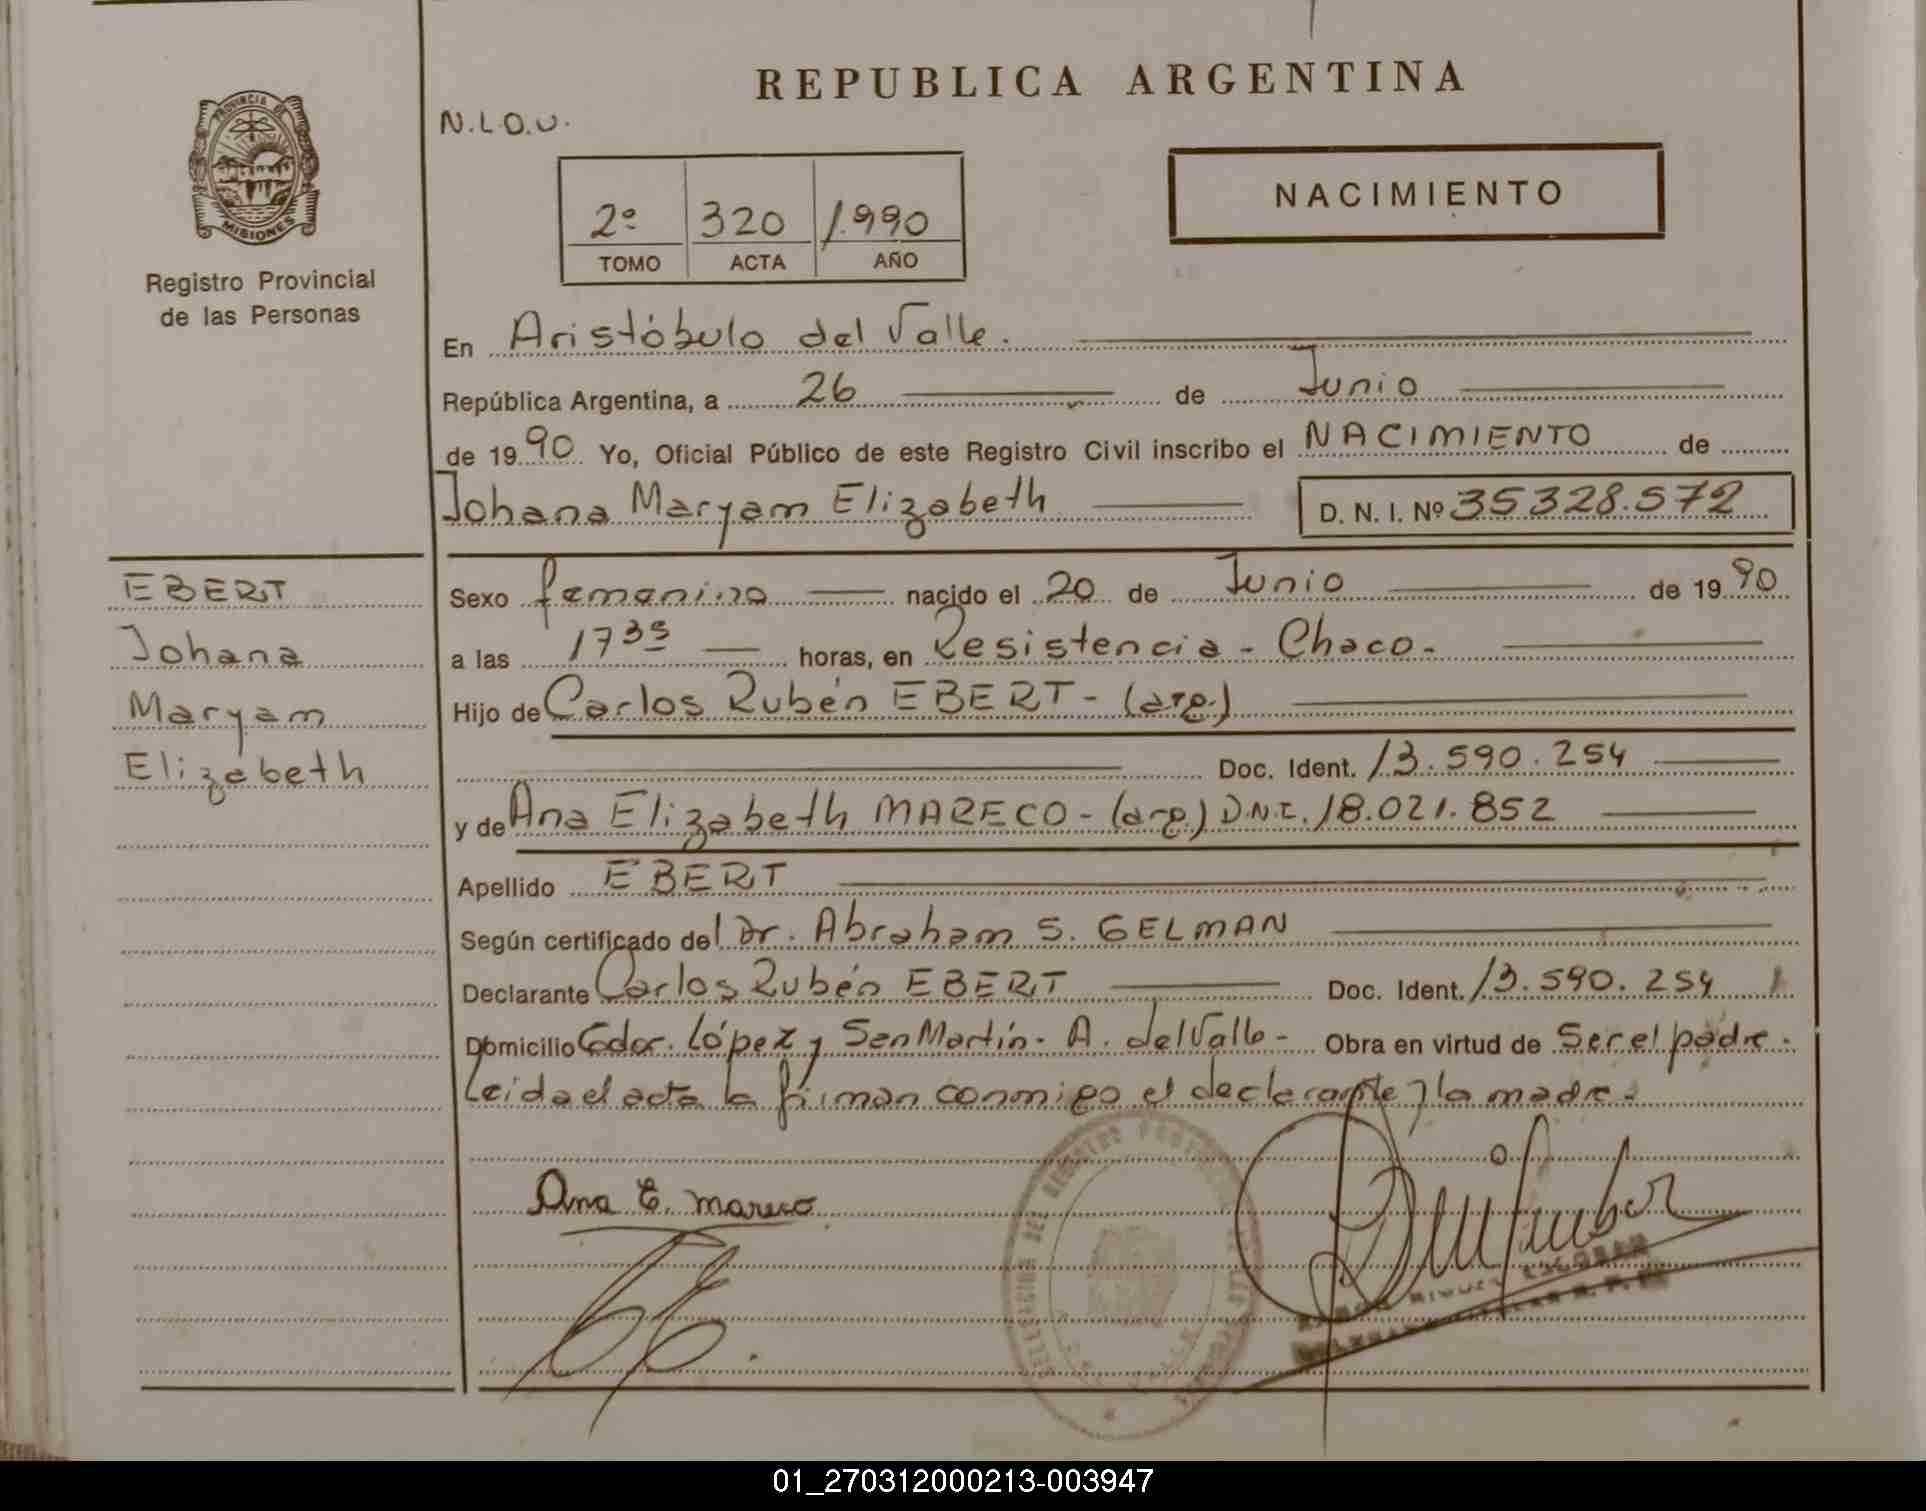 REPUBLICA ARGENTINA
PROVINCIA DE
MISIONES
Registro Provincial
de las Personas
N.L.O.U.
2º 320 1.990
TOMO ACTA AÑO
NACIMIENTO
En Aristóbulo del Valle.
República Argentina, a 26 de Junio
de 1990 Yo, Oficial Público de este Registro Civil inscribo el NACIMIENTO de
Johana Maryam Elizabeth D. N. I. Nº 35328.572
EBERT
Johana
Maryam
Elizabeth
Sexo femenino nacido el 20 de Junio de 1990
a las 17 35 horas, en Resistencia - Chaco -
Hijo de Carlos Rubén EBERT - (arg.)
Doc. Ident. 13.590.254
y de Ana Elizabeth MARECO - (arg.) D.N.I. 18.021.852
Apellido EBERT
Según certificado del Dr. Abraham S. GELMAN
Declarante Carlos Rubén EBERT Doc. Ident. 13.590.254
Domicilio Gdor. López y San Martín - A. del Valle - Obra en virtud de Ser el padre.
Leida el acta la firman conmigo el declarante y la madre.
Ana E. Mareco
01_270312000213-003947